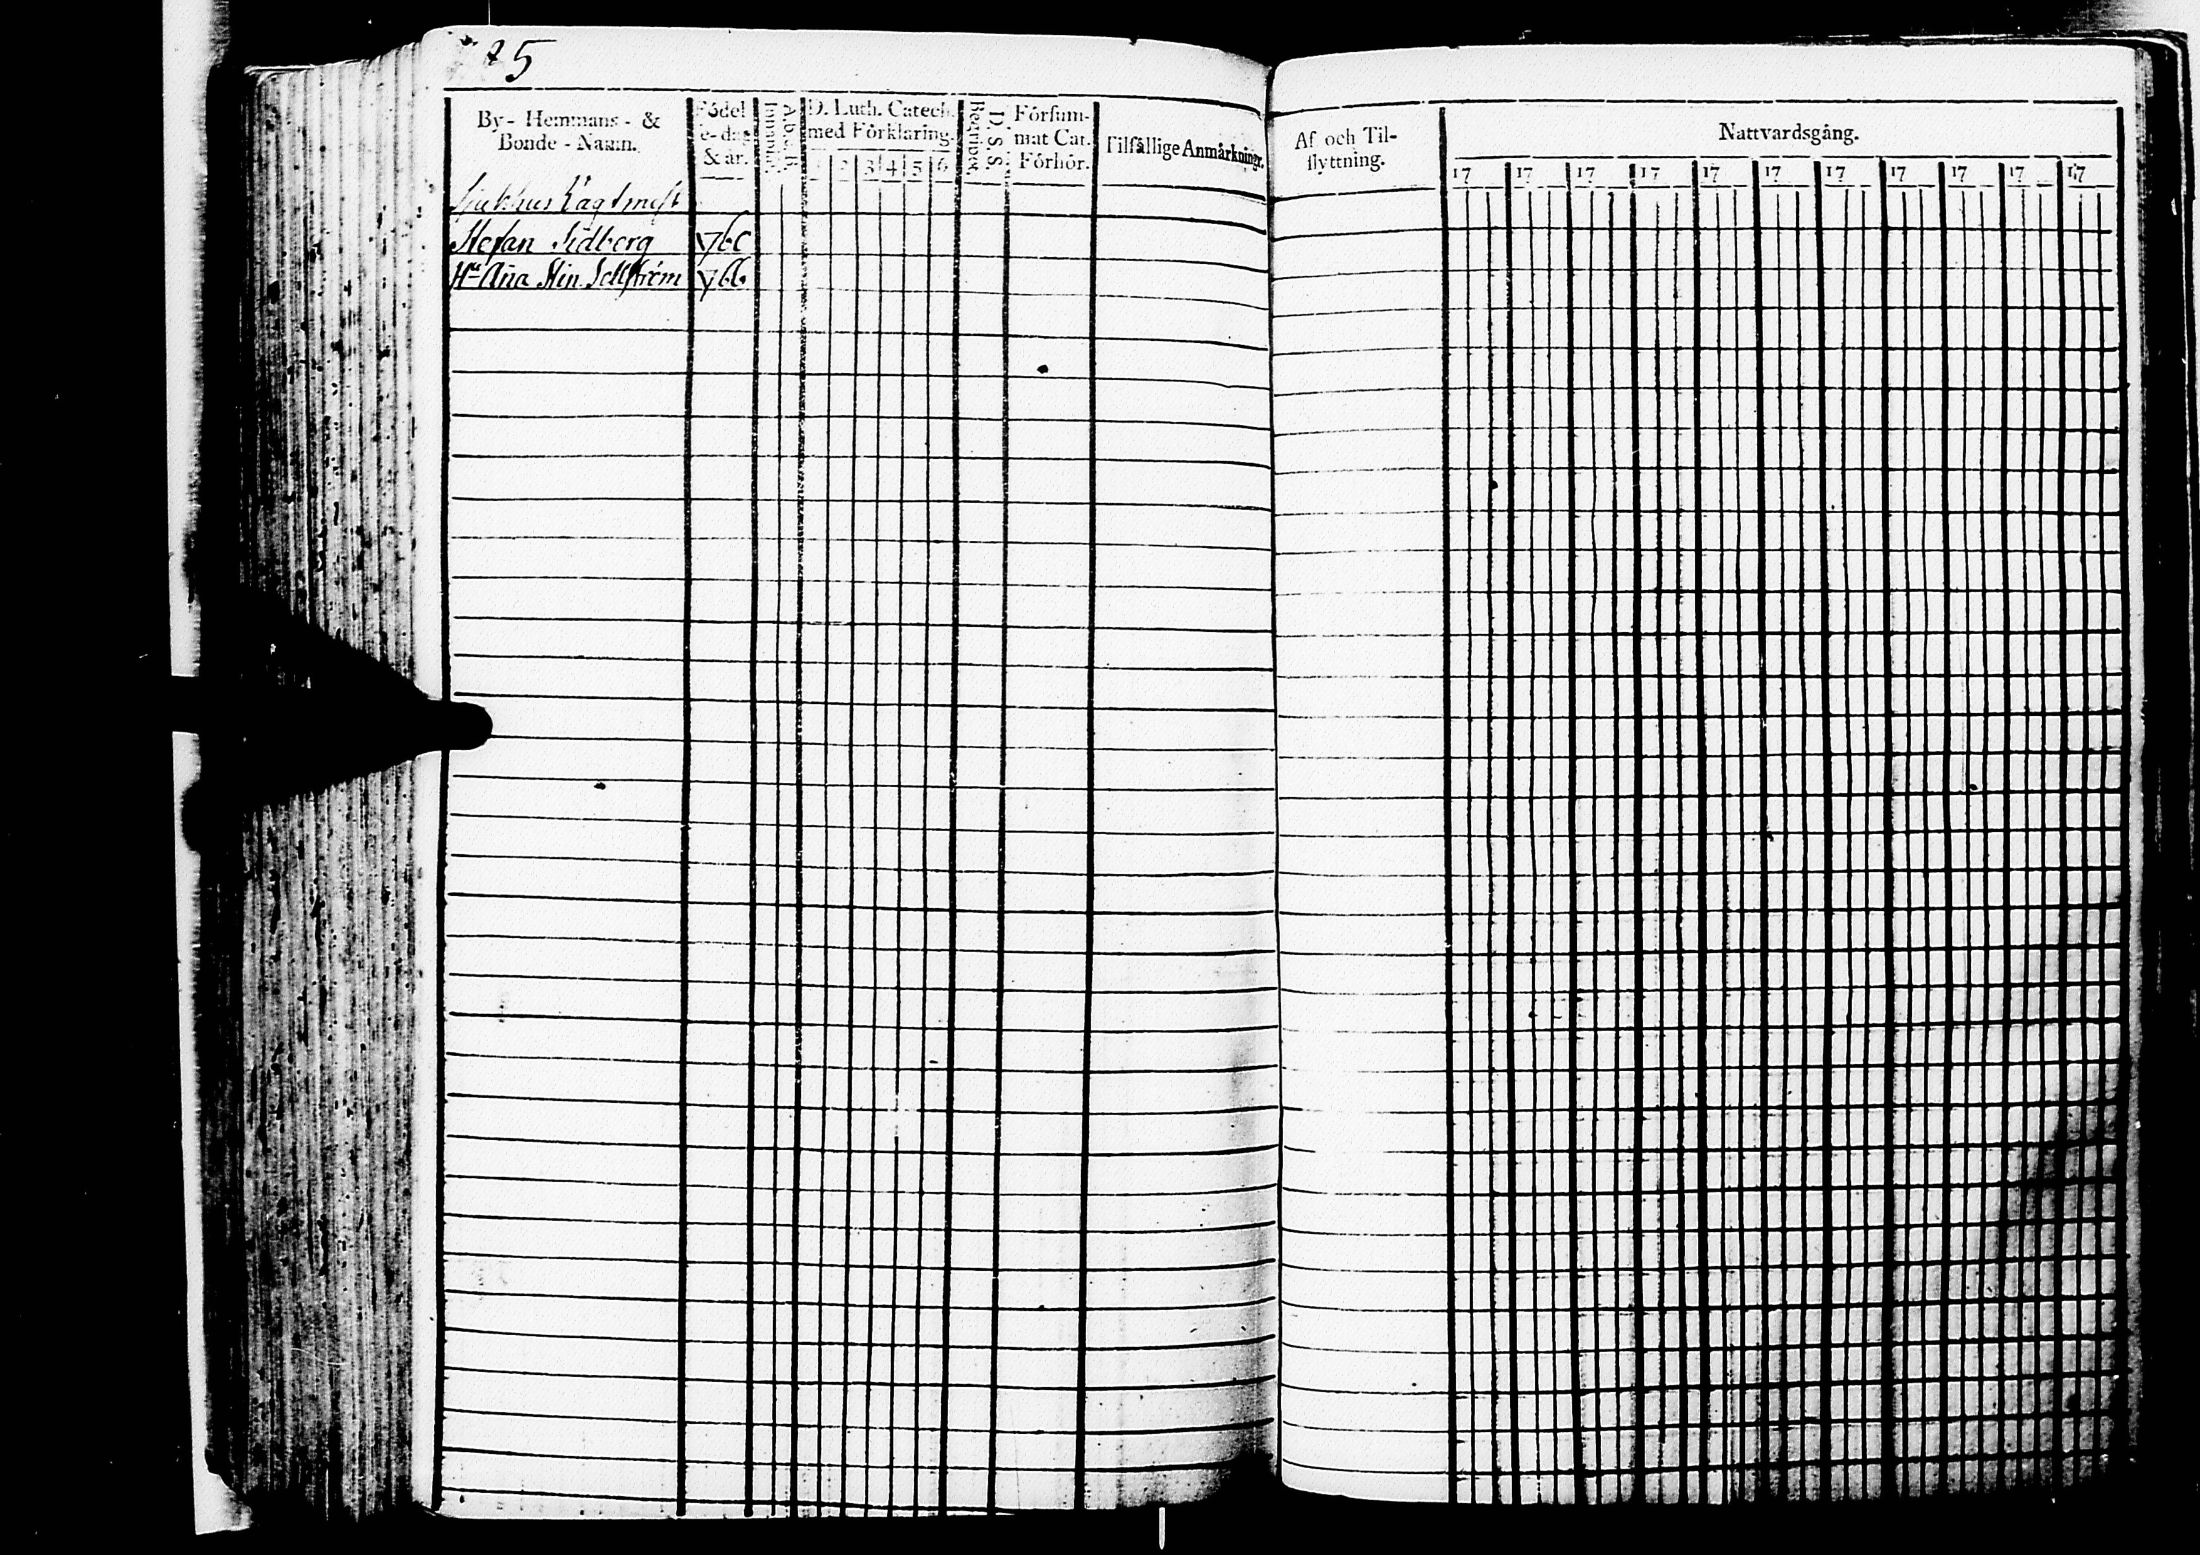 25
By- Hemmans- &
Bonde-Namn.
Födel
e-dag
& år.
A.b.c.B.
Innanläs.
D. Luth. Catech.
med Förklaring.
2 3 4 5 6
Begriper.
D. S. S.
Försum-
mat Cat.
Förhör.
Tilfällige Anmärkningr.
Sjukhus Vagtmest
Stefan Sidberg 760
Hu Aña Stin Sellström 766
Af och Til-
flyttning.
Nattvardsgång.
17 17 17 17 17 17 17 17 17 17 17